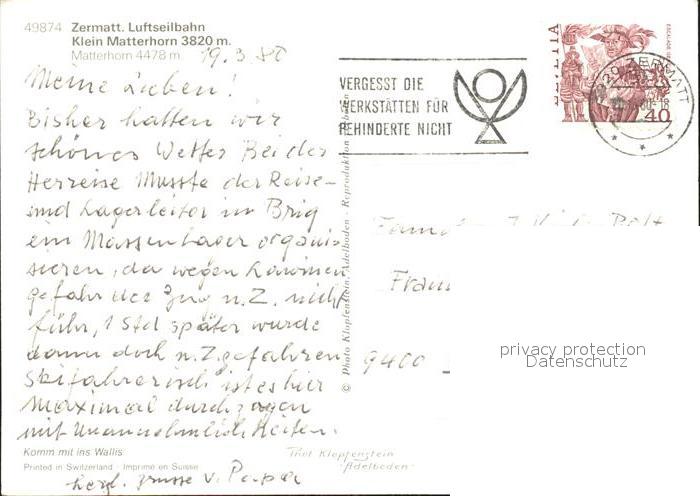 49874 Zermatt. Luftseilbahn
Klein Matterhorn 3820 m.
Matterhorn 4478 m
19.3 80
Meine Lieben!
Bisher hatten wir
schönes Wetter Bei der
Herreise Musste der Reise-
und Lagerleiter in Brig
ein Massenlager organi-
sieren, da wegen Lawinen
gefahr der Zug n. Z. nicht
führ, 1 Std später wurde
dann doch n. Z. gefahren
Skifahrerisch ist es hier
Maximal durchzogen
mit Unannehmlichkeiten.
herzl. Grüsse v. Papa
Komm mit ins Wallis
Printed in Switzerland - Imprimé en Suisse
Phot Klopfenstein
Adelboden
© Photo Klopfenstein, Adelboden - Reproduktion
VERGESST DIE
WERKSTÄTTEN FÜR
BEHINDERTE NICHT
HELVETIA
ESCALADE
40
ZERMATT
9400
privacy protection
Datenschutz